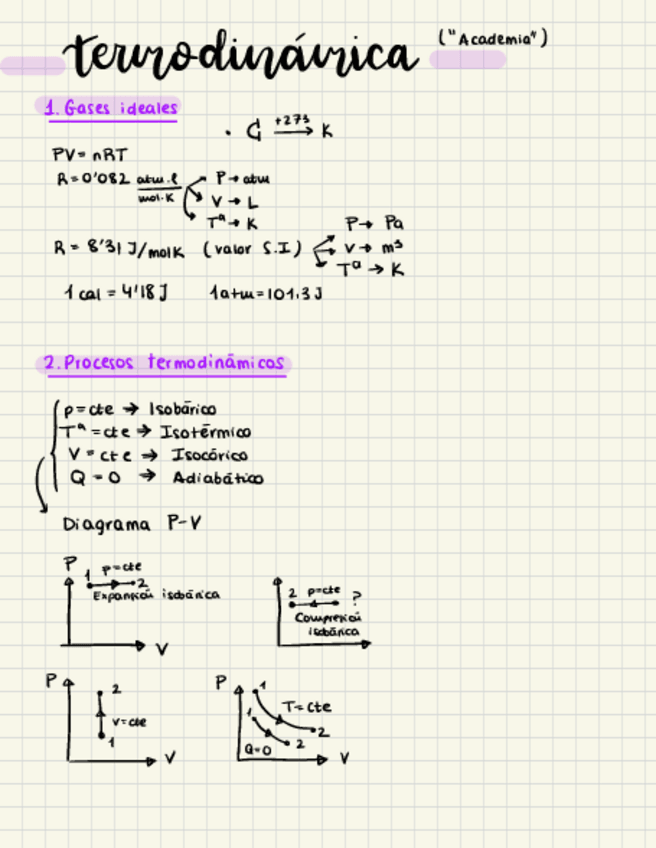 termodinámica ("Academia")
1. Gases ideales
· ℃ +273→ K
PV = nRT
R = 0'082 atm·l / mol·K
P → atm
V → L
Tª → K
R = 8'31 J/molK (valor S.I)
P → Pa
V → m³
Tª → K
1 cal = 4'18 J 1 atm = 101,3 J
2. Procesos termodinámicos
p = cte → Isobárico
Tª = cte → Isotérmico
V = cte → Isocórico
Q = 0 → Adiabático
Diagrama P-V
P 1 p=cte 2
Expansión isobárica
V
2 p=cte ?
Compresión
isobárica
P 2
V=cte
1
V
P 1
T=cte
1
2
2
Q=0
V